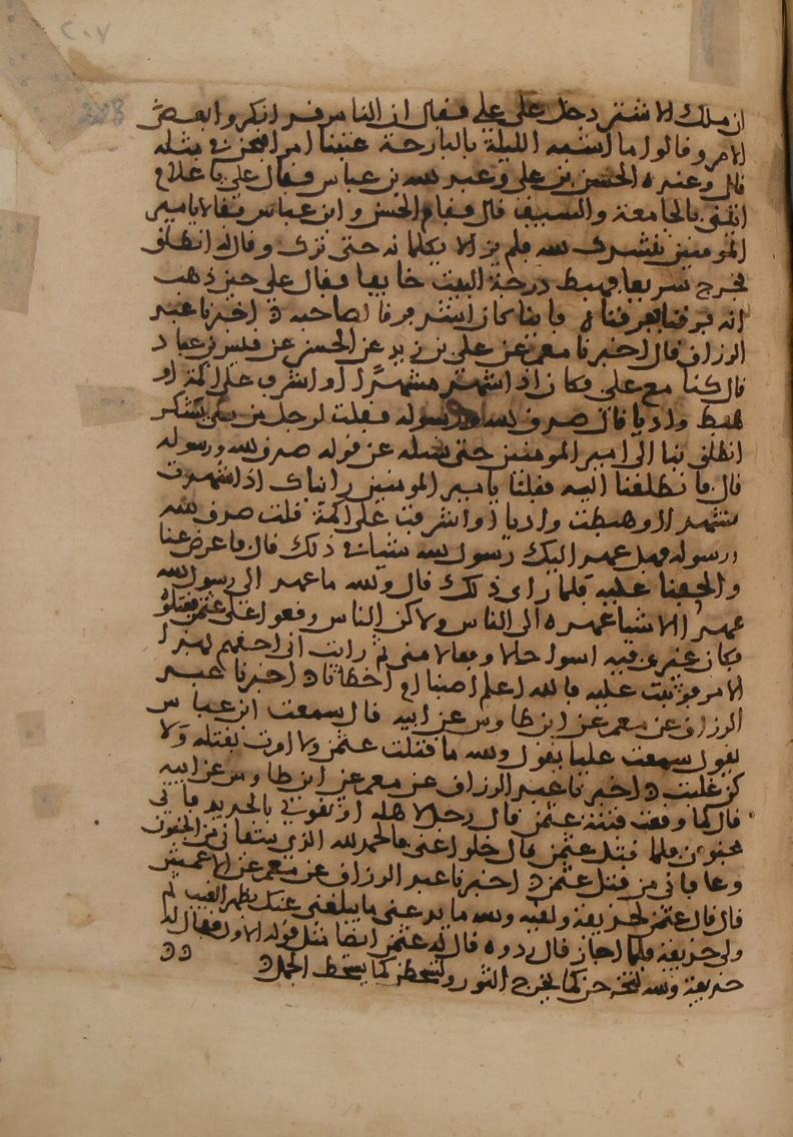 ٢٠٧
208
ان ملك الاشتر دخل على علي فقال ان الناس قد انكروا بعض
الامر وقالوا ما اشبه الليلة بالبارحة عتبنا امرا نحن في مثله
قال وعنده الحسن بن علي وعبد الله بن عباس فقال علي يا غلام
ائتني بالجامعة والسيف قال فقام الحسن وابن عباس فقالا يا امير
المومنين ننشدك الله فلم يزالا يكلمانه حتى ترك وقال له انطلق
فخرج سريعا فهبط درجة البيت خايفا فقال علي حين ذهب
انه فرقنا ففرقناه فاينا كان اشد فرقا لصاحبه اخبرنا عبد
الرزاق قال اخبرنا معمر عن علي بن زيد عن الحسن عن قيس بن عباد
قال كنا مع علي فكان اذا اشهد مشهدا او اشرف على اكمة او
هبط واديا قال صدق الله ورسوله فقلت لرجل من بني يشكر
انطلق بنا الى امير المومنين حتى نسله عن قوله صدق الله ورسوله
قال فانطلقنا اليه فقلنا يامير المومنين رايناك اذا شهدت
مشهدا او هبطت واديا او اشرفت على اكمة قلت صدق الله
ورسوله فهل عهد اليك رسول الله شيا في ذلك قال فاعرض عنا
والححنا عليه فلما راى ذلك قال والله ما عهد الى رسول الله
عهدا الا شيا عهده الى الناس ولاكن الناس وقعوا على عثمن فقتلوه
فكان غيري فيه اسوا حالا وفعالا مني ثم رايت اني احقهم بهذا
الامر فوثبت عليه فالله اعلم اصبنا ام اخطانا اخبرنا عبد
الرزاق عن معمر عن ابن طاوس عن ابيه قال سمعت ابن عباس
يقول سمعت عليا يقول والله ما قتلت عثمن ولا امرت بقتله ولا
كن غلبت اخبرنا عبد الرزاق عن معمر عن ابن طاوس عن ابيه
قال لما وقعت فتنة عثمن قال رجل لاهله اوثقوني بالحديد فاني
مجنون فلما قتل عثمن قال خلوا عني فالحمد لله الذي شفاني من الجنون
وعافاني من قتل عثمن اخبرنا عبد الرزاق عن معمر عن الاعمش
قال قال عثمن لحذيفة ولقيه والله ما يدعني ما يبلغني عنك بظهر الغيب ثم
ولى حذيفة فلما اجاز قال ردوه قال له عثمن ايضا مثل قوله الاول فقال له
حذيفة والله لتخرجن كما يخرج الثور ولتشحطن كما يشحط الجمل